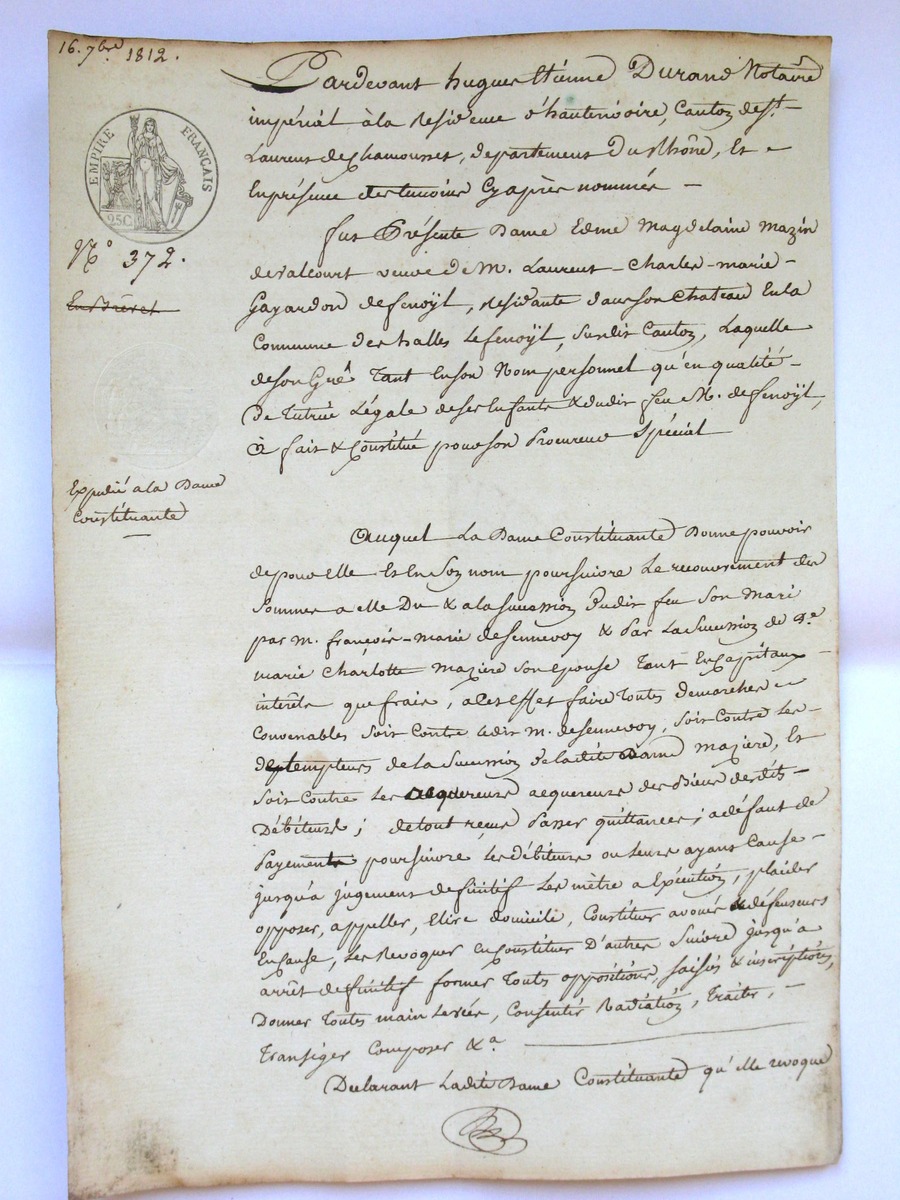 16. 7bre 1812.
EMPIRE FRANÇAIS
25C
N° 372.
En Brevet
Expédié a la Dame
Constituante
Pardevant hugues Etienne Durand Notaire
impérial à la Residence d'hauterivoire, Canton de St.
Laurent de Chamousset, departement Du Rhône, Et
En présence des temoins Cyaprès nommés
fut Présente Dame Edmé Magdelaine Mazin
de Valcourt veuve de M. Laurent-Charles-marie-
Gayardon de fenoÿl, Residante dans son Chateau En la
Commune des halles Le fenoÿl, Susdit Canton, Laquelle
de son Gré Tant En son Nom personnel qu'en qualité
De Tutrice Légale de ses Enfants & dudit feu M. de fenoÿl,
à fait & Constitué pour son Procureur Spécial
Auquel La Dame Constituante Donne pouvoir
de pour Elle Et En Son nom poursuivre Le recouvrement des
Sommes a elle Du & a la Succession dudit feu Son Mari
par M. françois-marie de Sennevoy & Par La Succession de De
marie Charlotte Mazière Son Epouse Tant En Capitaux
interêts que frais, a cet Effet faire Toutes demarches
Convenables Soit Contre Ledit M. de Sennevoy, Soit Contre Les
De La Succession de ladite Dame Mazière, Et
Soit Contre Les acquereurs des Biens desdits
Débiteurs; de tout reçus Passer quittances; a défaut de
Payements poursuivre Les débiteurs ou Leurs ayant Cause
jusqu'a jugement définitif Les mètre a Exécution, plaider
opposer, appeller, Elire domicile, Constituer avoués & défenseurs
En Cause, Les Revoquer en Constituer D'autres Suivre jusqu'a
arrêt définitif former Touts oppositions, saisies & inscriptions,
Donner Toutes main Levées, Consentir Radiation, Traiter,
Transiger Composer &a.
Declarant Ladite Dame Constituante qu'elle revoque